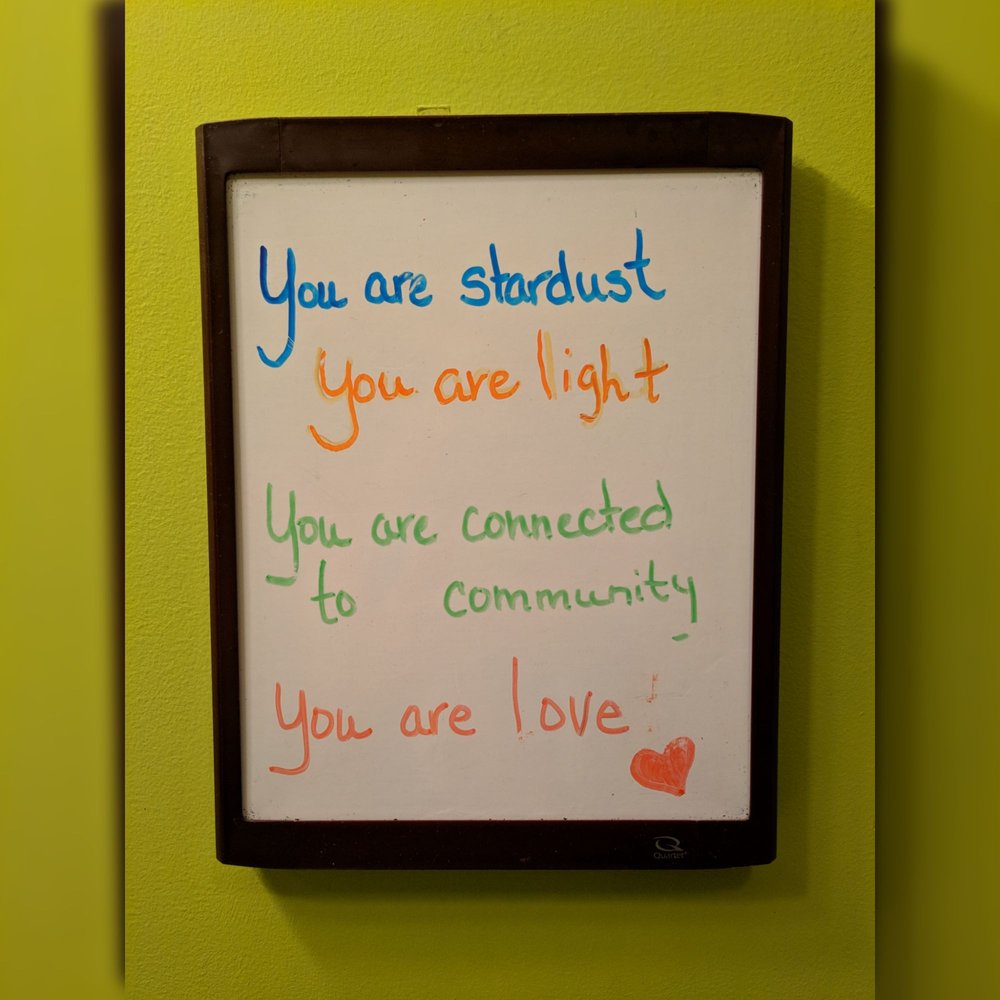 You are stardust
You are light
You are connected
to community
You are love!
Quartet